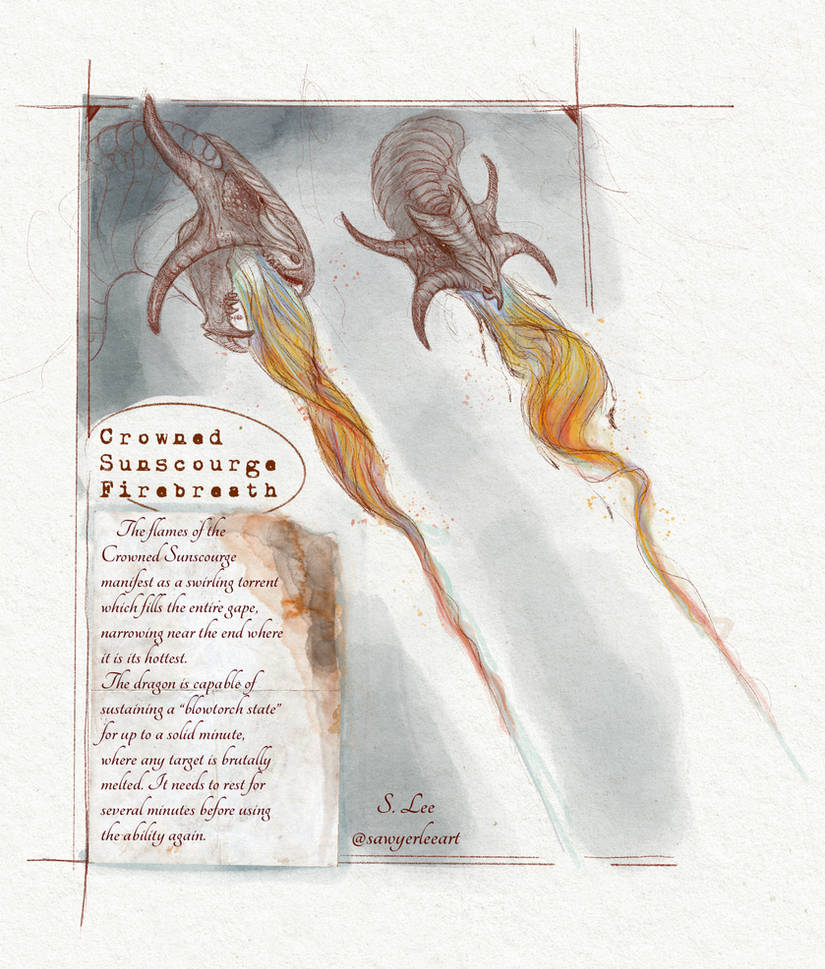 Crowned
Sunscourge
Firebreath
The flames of the
Crowned Sunscourge
manifest as a swirling torrent
which fills the entire gape,
narrowing near the end where
it is its hottest.
The dragon is capable of
sustaining a “blowtorch state”
for up to a solid minute,
where any target is brutally
melted. It needs to rest for
several minutes before using
the ability again.
S. Lee
@sawyerleeart